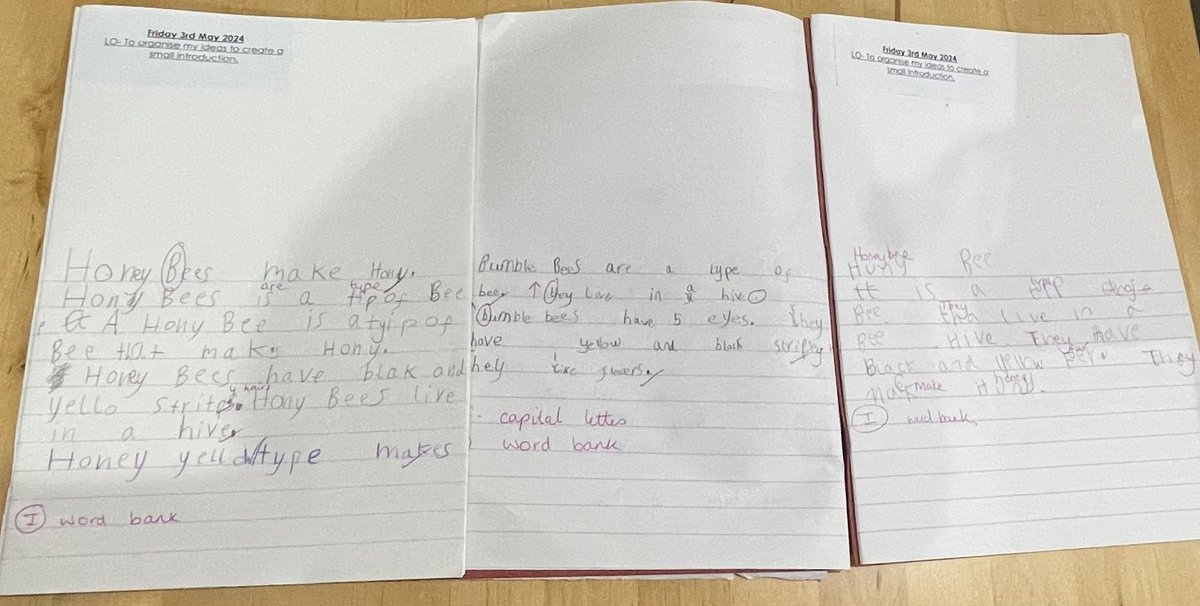 Friday 3rd May 2024
LO- To organise my ideas to create a
small introduction.
Honey Bees make Hony.
are type
Hony Bees is a tip of Bee
A Hony Bee is a tyip of
Bee that maks Hony.
Honey Bees have blak and
y hairs
yello strite. Hony Bees live
in a hive
Honey yellow type makes
I word bank
Bumble Bees are a type of
bee. ↑ they live in a hive
bumble bees have 5 eyes. They
have yellow and black stripy
hey like flowers
capital letters
word bank
Friday 3rd May 2024
LO- To organise my ideas to create a
small introduction.
Honey bee
Huny Bee
It is a
They
Bee live in a
Bee Hive They have
Black and yellow They
make honey
I word bank